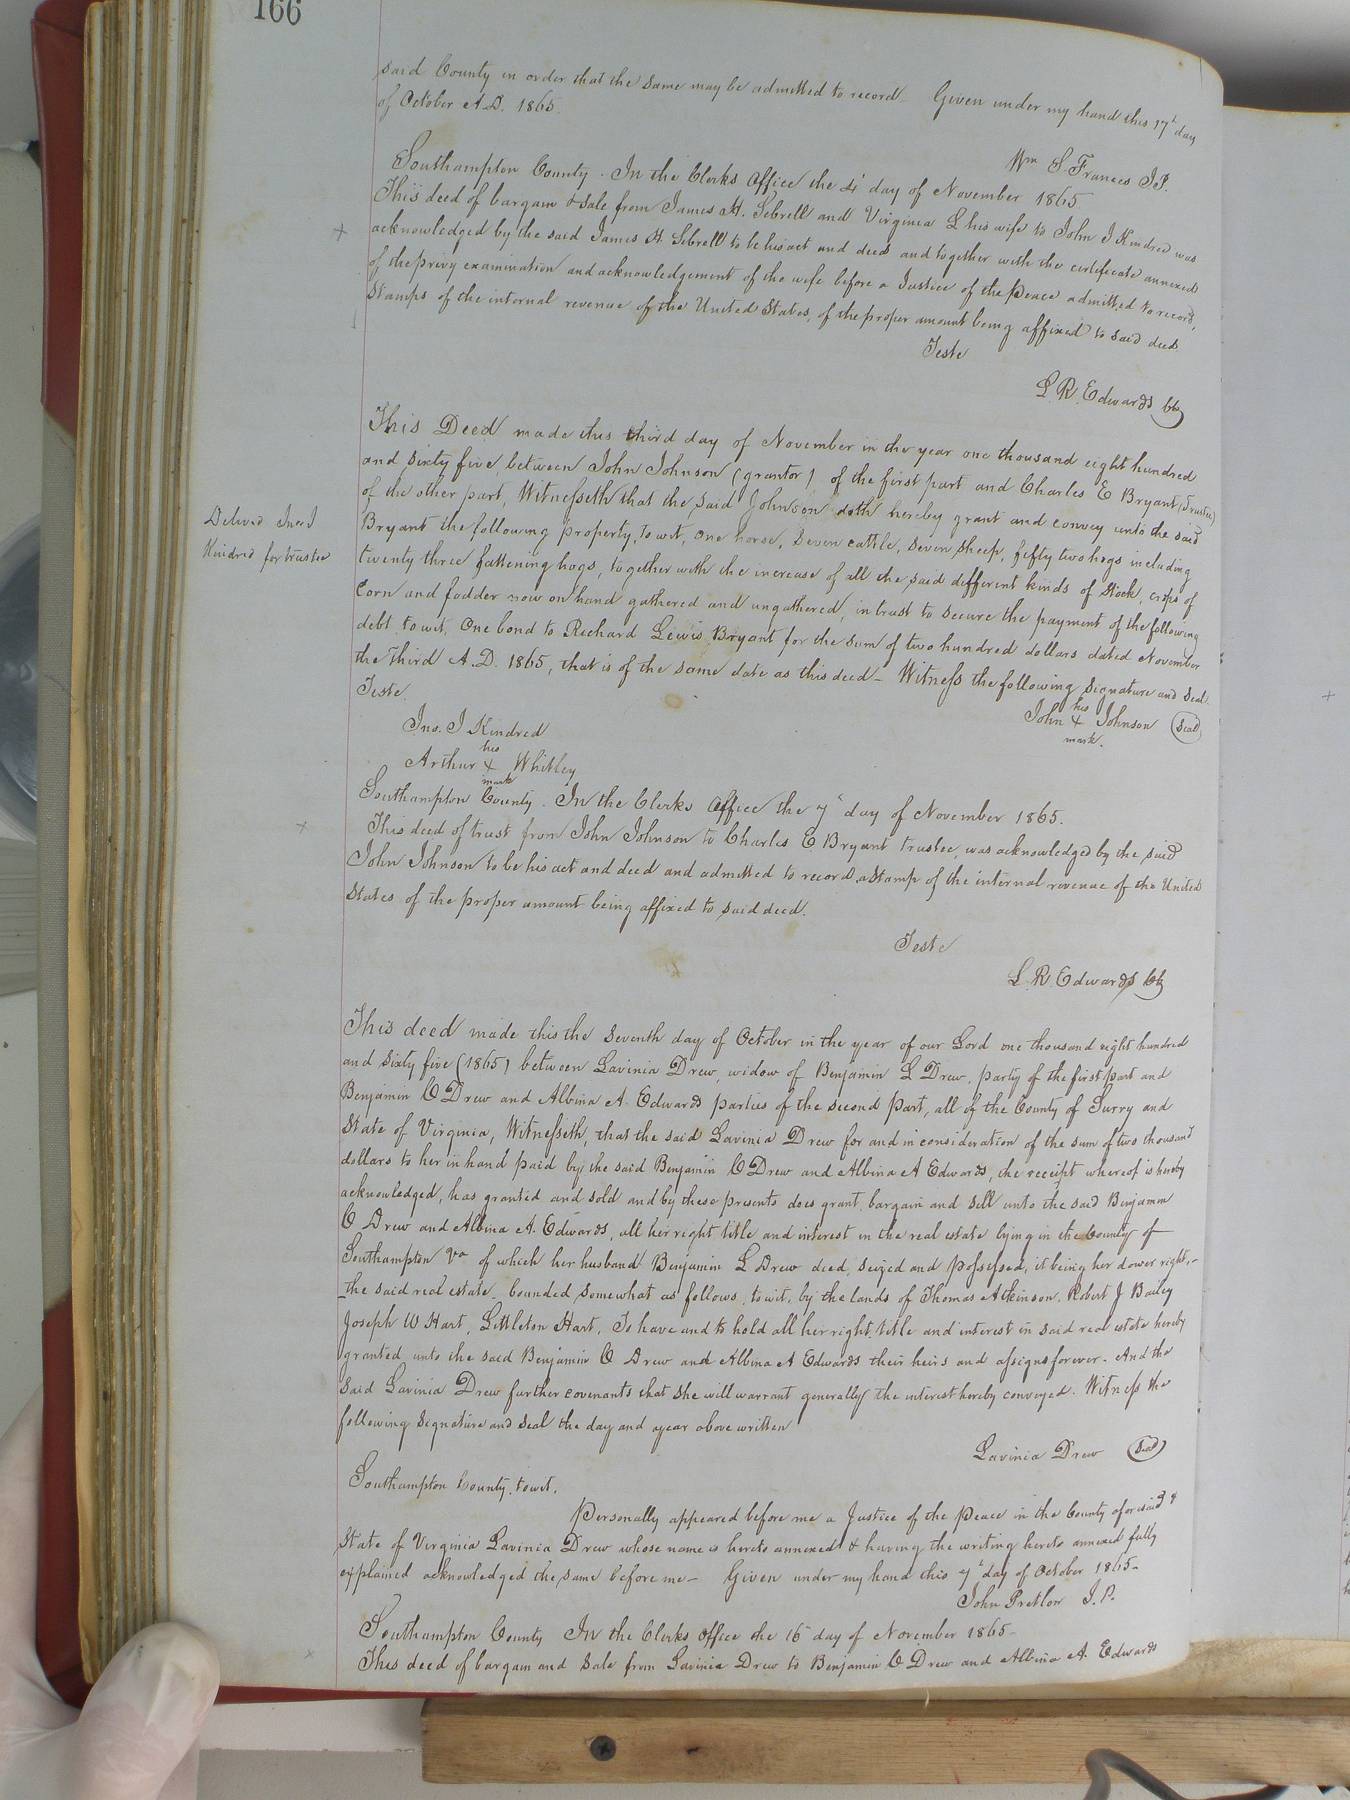 166
said County in order that the same may be admitted to record. Given under my hand this 17th day
of October A.D. 1865.
Wm S Frances J.P.
Southampton County. In the Clerks Office the 4' day of November 1865
This deed of bargain & sale from James H. Sebrell and Virginia L his wife to John J Kindred was
acknowledged by the said James H. Sebrell to be his act and deed and together with the certificate annexed
of the privy examination and acknowledgement of the wife before a Justice of the Peace admitted to record,
Stamps of the internal revenue of the United States, of the proper amount being affixed to said deed.
Teste
L. R. Edwards Clk
This Deed made this third day of November in the year one thousand eight hundred
and sixty five between John Johnson (grantor) of the first part and Charles E Bryant (Trustee)
of the other part, Witnesseth that the said Johnson doth hereby grant and convey unto the said
Bryant the following property, to wit, one horse, seven cattle, seven sheep, fifty two hogs including
twenty three fattening hogs, together with the increase of all the said different kinds of Stock, crops of
Corn and fodder now on hand gathered and ungathered, in trust to secure the payment of the following
debt to wit, One bond to Richard Lewis Bryant for the sum of two hundred dollars dated November
the third A.D. 1865, that is of the same date as this deed – Witness the following signature and Seal.
Delivd Jno J
Kindred for trustee
his
John + Johnson (Seal)
mark.
Teste
Jno. J Kindred
his
Arthur + Whitley
mark
Southampton County. In the Clerks Office the 7' day of November 1865.
This deed of trust from John Johnson to Charles E Bryant trustee, was acknowledged by the said
John Johnson to be his act and deed and admitted to record, a Stamp of the internal revenue of the United
States of the proper amount being affixed to said deed.
Teste
L. R. Edwards Clk
This deed made this the Seventh day of October in the year of our Lord one thousand eight hundred
and sixty five (1865) between Lavinia Drew, widow of Benjamin L Drew, party of the first part and
Benjamin O Drew and Albina A. Edwards parties of the second part, all of the County of Surry and
State of Virginia, Witnesseth, that the said Lavinia Drew for and in consideration of the sum of two thousand
dollars to her in hand paid by the said Benjamin O Drew and Albina A Edwards, the receipt whereof is hereby
acknowledged, has granted and sold and by these presents does grant, bargain and sell unto the said Benjamin
O Drew and Albina A. Edwards, all her right, title and interest in the real estate lying in the County of
Southampton Va of which her husband Benjamin L Drew deed, seized and possessed, it being her dower right,–
the said real estate bounded somewhat as follows, to wit, by the lands of Thomas Atkinson, Robert J Bailey
Joseph W Hart, Littleton Hart, To have and to hold all her right, title and interest in said real estate hereby
granted unto the said Benjamin O Drew and Albina A Edwards their heirs and assigns forever. And the
said Lavinia Drew further covenants that she will warrant generally the interest hereby conveyed. Witness the
following signature and seal the day and year above written
Lavinia Drew (Seal)
Southampton County, to wit,
Personally appeared before me a Justice of the Peace in the County aforesaid &
State of Virginia Lavinia Drew whose name is hereto annexed & having the writing hereto annexed fully
explained acknowledged the same before me – Given under my hand this 7th day of October 1865–
John Pretlow J.P.
Southampton County In the Clerks Office the 16 day of November 1865–
This deed of bargain and sale from Lavinia Drew to Benjamin O Drew and Albina A. Edwards